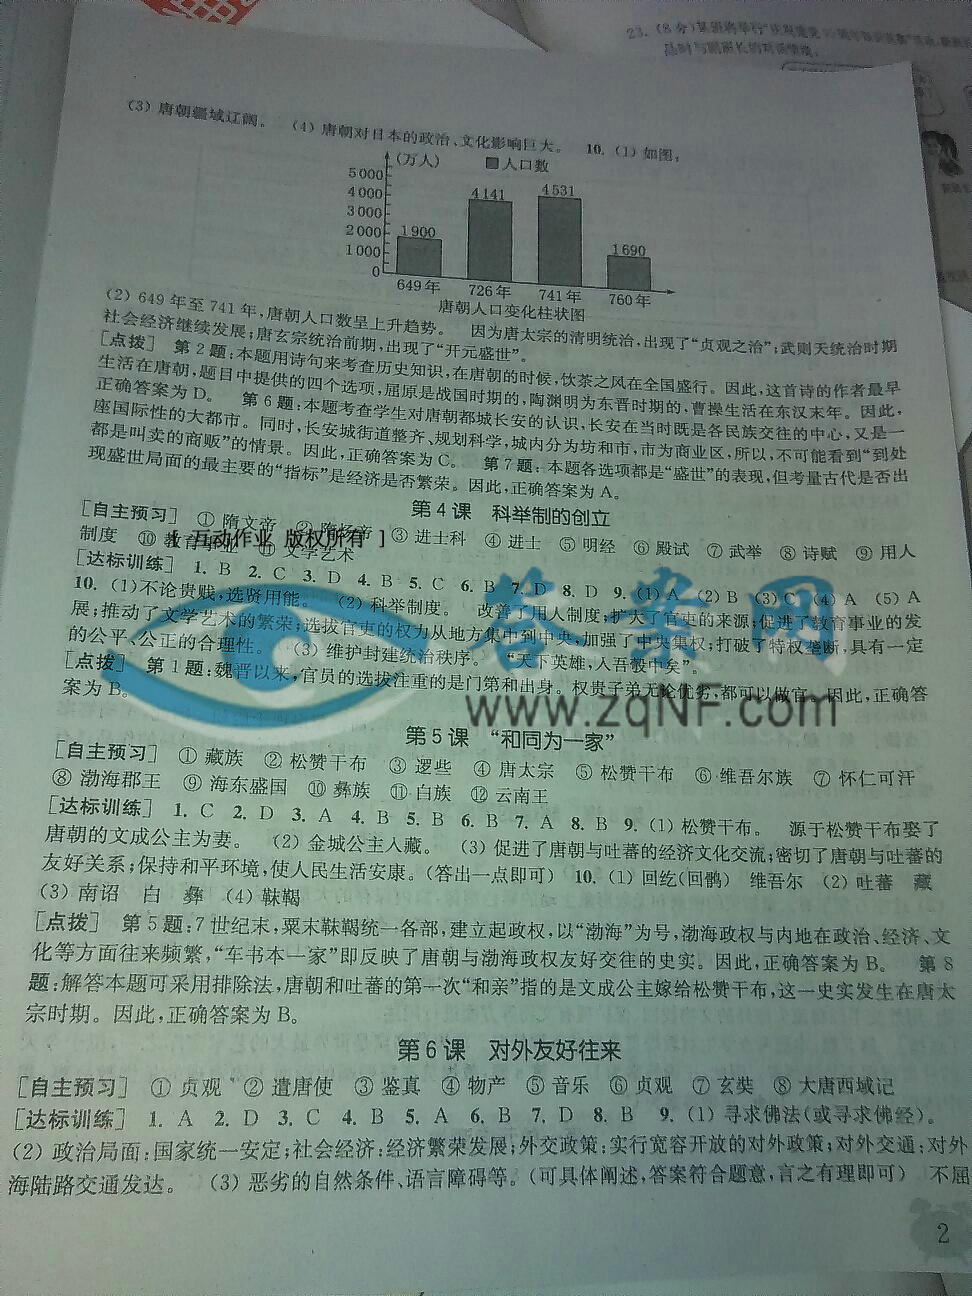 23. (8分)
(3) 唐朝疆域辽阔。 (4) 唐朝对日本的政治、文化影响巨大。 10. (1) 如图:
(万人) 人口数
5000
4000
3000
2000
1000
0
1900 4141 4531 1690
649年 726年 741年 760年
唐朝人口变化柱状图
(2) 649年至741年,唐朝人口数呈上升趋势。 因为唐太宗的清明统治,出现了“贞观之治”;武则天统治时期
社会经济继续发展;唐玄宗统治前期,出现了“开元盛世”。
[点拨] 第2题:本题用诗句来考查历史知识,在唐朝的时候,饮茶之风在全国盛行。因此,这首诗的作者最早
生活在唐朝,题目中提供的四个选项,屈原是战国时期的,陶渊明为东晋时期的,曹操生活在东汉末年。因此,
正确答案为D。 第6题:本题考查学生对唐朝都城长安的认识,长安在当时既是各民族交往的中心,又是一
座国际性的大都市。同时,长安城街道整齐、规划科学,城内分为坊和市,市为商业区,所以,不可能看到“到处
都是叫卖的商贩”的情景。因此,正确答案为C。 第7题:本题各选项都是“盛世”的表现,但考量古代是否出
现盛世局面的最主要的“指标”是经济是否繁荣。因此,正确答案为A。
第4课 科举制的创立
[自主预习] ① 隋文帝 ② 隋炀帝 ③ 进士科 ④ 进士 ⑤ 明经 ⑥ 殿试 ⑦ 武举 ⑧ 诗赋 ⑨ 用人
制度 ⑩ 教育事业 ⑪ 文学艺术
[ 互动作业 版权所有 ]
[达标训练] 1. B 2. C 3. D 4. B 5. C 6. B 7. D 8. D 9. (1) A (2) B (3) C (4) A (5) A
10. (1)不论贵贱,选贤用能。 (2) 科举制度。 改善了用人制度;扩大了官吏的来源;促进了教育事业的发
展;推动了文学艺术的繁荣;选拔官吏的权力从地方集中到中央,加强了中央集权;打破了特权垄断,具有一定
的公平、公正的合理性。 (3) 维护封建统治秩序。 “天下英雄,入吾彀中矣”。
[点拨] 第1题:魏晋以来,官员的选拔注重的是门第和出身。权贵子弟无论优劣,都可以做官。因此,正确答
案为B。
答案网
www.zqNF.com
第5课 “和同为一家”
[自主预习] ① 藏族 ② 松赞干布 ③ 逻些 ④ 唐太宗 ⑤ 松赞干布 ⑥ 维吾尔族 ⑦ 怀仁可汗
⑧ 渤海郡王 ⑨ 海东盛国 ⑩ 彝族 ⑪ 白族 ⑫ 云南王
[达标训练] 1. C 2. D 3. A 4. B 5. B 6. B 7. A 8. B 9. (1) 松赞干布。 源于松赞干布娶了
唐朝的文成公主为妻。 (2) 金城公主入藏。 (3) 促进了唐朝与吐蕃的经济文化交流;密切了唐朝与吐蕃的
友好关系;保持和平环境,使人民生活安康。(答出一点即可) 10. (1) 回纥(回鹘) 维吾尔 (2) 吐蕃 藏
(3) 南诏 白 彝 (4) 靺鞨
[点拨] 第5题:7世纪末,粟末靺鞨统一各部,建立起政权,以“渤海”为号,渤海政权与内地在政治、经济、文
化等方面往来频繁,“车书本一家”即反映了唐朝与渤海政权友好交往的史实。因此,正确答案为B。 第8
题:解答本题可采用排除法,唐朝和吐蕃的第一次“和亲”指的是文成公主嫁给松赞干布,这一史实发生在唐太
宗时期。因此,正确答案为B。
第6课 对外友好往来
[自主预习] ① 贞观 ② 遣唐使 ③ 鉴真 ④ 物产 ⑤ 音乐 ⑥ 贞观 ⑦ 玄奘 ⑧ 大唐西域记
[达标训练] 1. A 2. D 3. C 4. B 5. A 6. B 7. D 8. B 9. (1) 寻求佛法(或寻求佛经)。
(2) 政治局面:国家统一安定;社会经济:经济繁荣发展;外交政策:实行宽容开放的对外政策;对外交通:对外
海陆路交通发达。 (3) 恶劣的自然条件、语言障碍等。(可具体阐述,答案符合题意,言之有理即可) 不屈
2